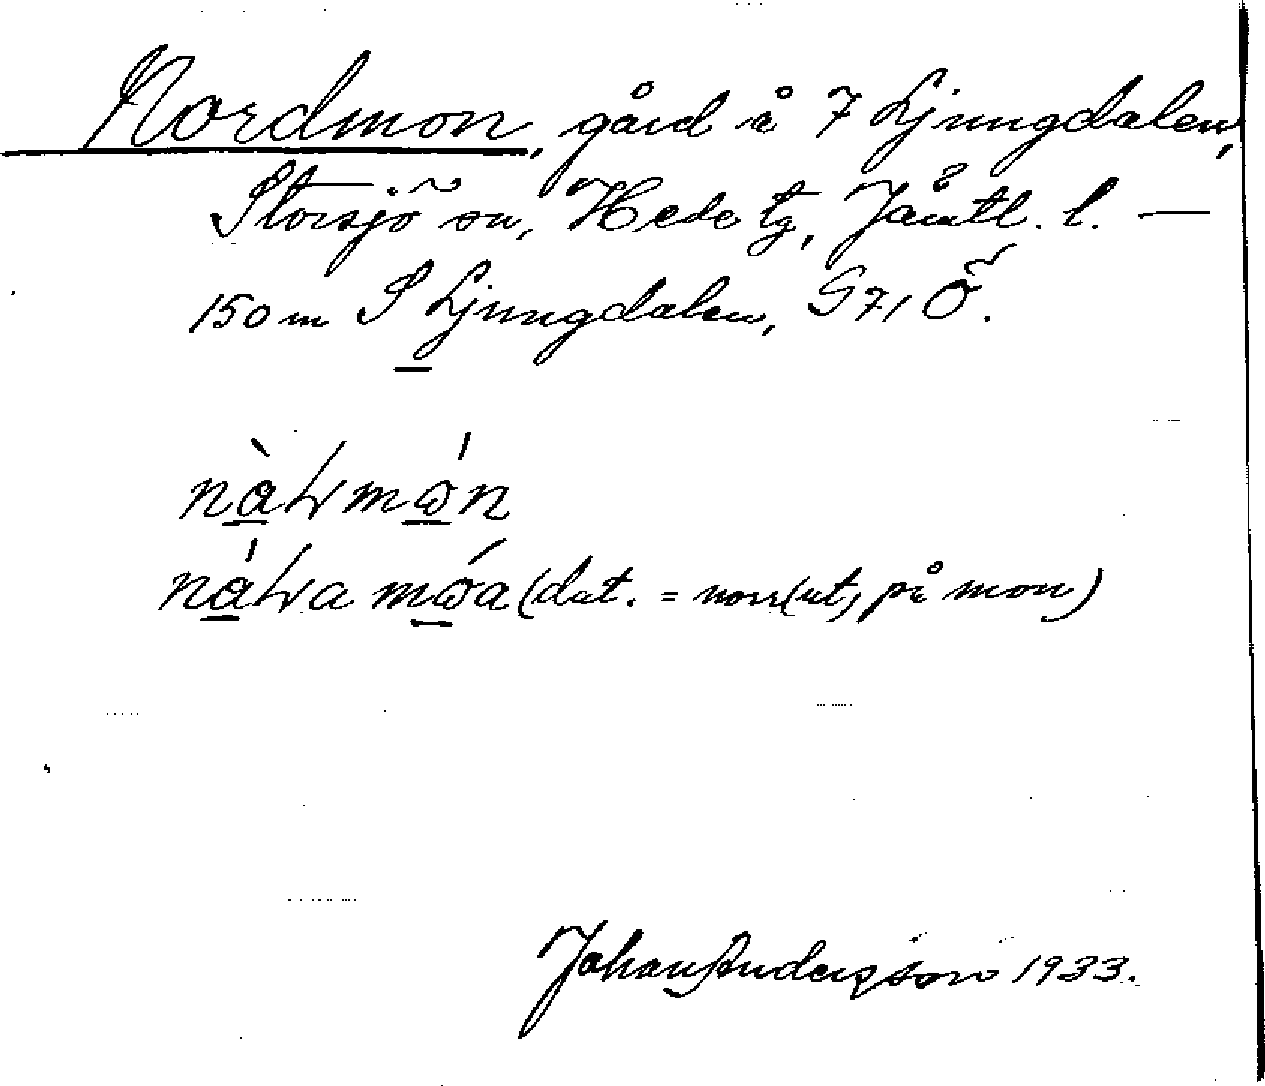 Nordmon, gård å 7 Ljungdalen,
Storsjö sn, Hede tg, Jämtl. l. —
150 m S Ljungdalen, G71 Ö.
(dat. = norr(ut) på mon)
Johan Andersson 1933.